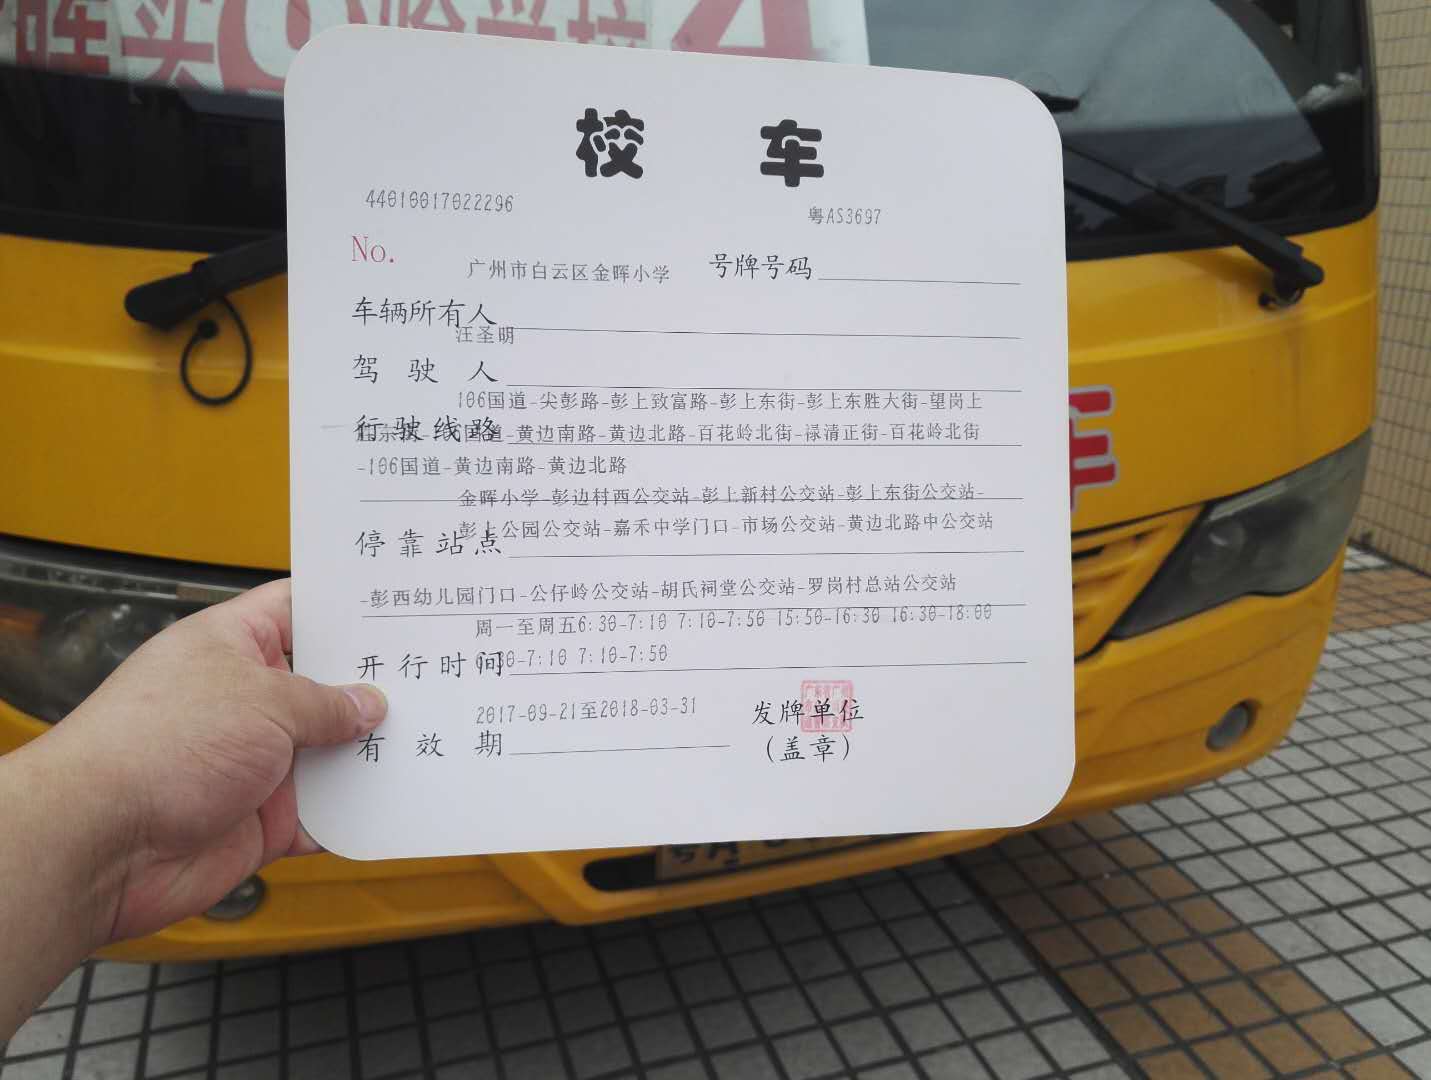 校 车
44010017022296
粤AS3697
No.
广州市白云区金晖小学
号牌号码
车辆所有人
汪圣明
驾驶人
106国道-尖彭路-彭上致富路-彭上东街-彭上东胜大街-望岗上
行驶线路
国道-黄边南路-黄边北路-百花岭北街-禄清正街-百花岭北街
-106国道-黄边南路-黄边北路
金晖小学-彭边村西公交站-彭上新村公交站-彭上东街公交站-
彭上公园公交站-嘉禾中学门口-市场公交站-黄边北路中公交站
停靠站点
-彭西幼儿园门口-公仔岭公交站-胡氏祠堂公交站-罗岗村总站公交站
周一至周五6:30-7:10 7:10-7:50 15:50-16:30 16:30-18:00
6:30-7:10 7:10-7:50
开行时间
2017-09-21至2018-03-31
发牌单位
有效期
(盖章)